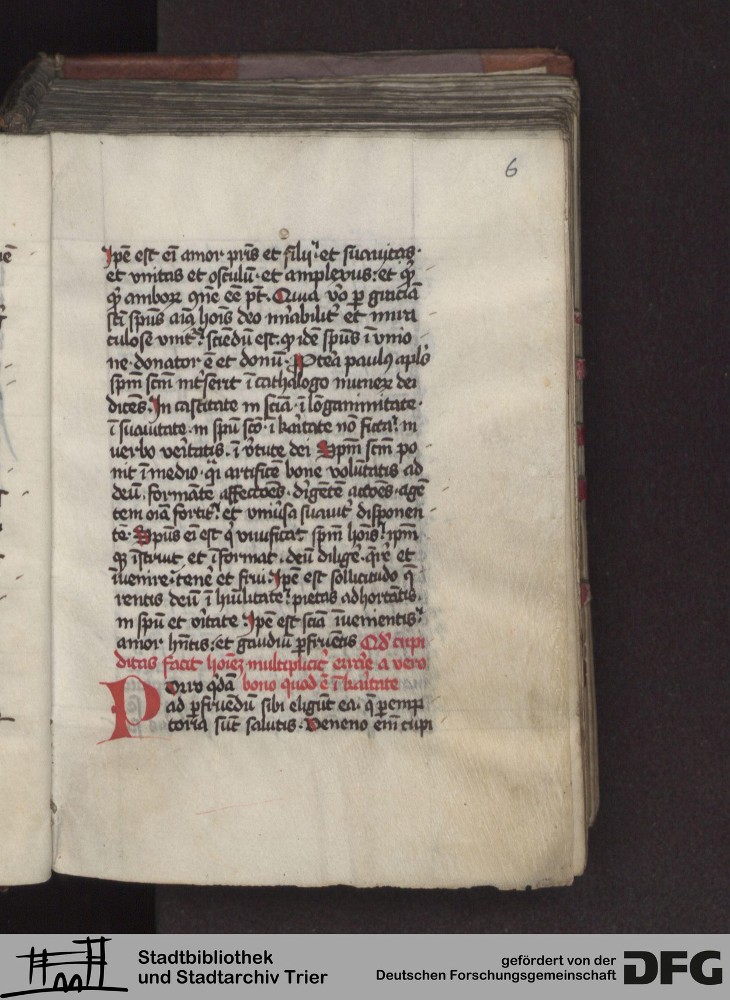 6
Ipē est eī amor pr̄is et filij· et suauitas·
et vnitas et osculū· et amplexus: et q̄
q̄ amborꝫ ꝯ̄ne eē pt̄· Quia v̄o ꝑ graciā
sc̄i sp̄us aīa hoīs deo mīabilit̄ et mira
culose vnit̄ᷣ sciēdū est· ꝙ idē sp̄us ī vnio
ne· donator ē et donū· Ptēa paulꝰ apl̄s
sp̄m sc̄m int̄serit ī cathalogo munerꝫ dei
dicēs· In castitate in sciā· ī lōganimitate·
ī suauitate· in sp̄u sc̄o· ī kāritate nō ficta· in
uerbo veritatis· ī v̄tute dei Sp̄m sc̄m po
nit ī medio· q̄i artificē bone volūtatis ad
deū· formāte affectōēs· dīgētē actōēs· agē
tem oīa fortit̄· et vniūsa suauit̄ disponen
tē· Sp̄us eī est q̄ viuificat sp̄m hoīs· ip̄m
qꝫ īstruit et īformat· deū diligē· q̄rē et
īuenire· tenē et frui· Ipē est sollicitudo q̄
rentis deū ī hūilitate· pietas adhortātis·
in sp̄u et v̄itate· Ipē est sciā īuenientis·
amor hn̄tis· et gaudiū ꝑfruētis Qd̄ cupi
ditas facit hoīeꝫ multiplicit̄ errāe a vero
Porro q̄dā bono quod ē ī kāritate
ad ꝑfruēdū sibi eligūt ea· q̄ ꝑemp
toria sūt salutis· Veneno enī cupi
Stadtbibliothek
und Stadtarchiv Trier
gefördert von der
Deutschen Forschungsgemeinschaft
DFG